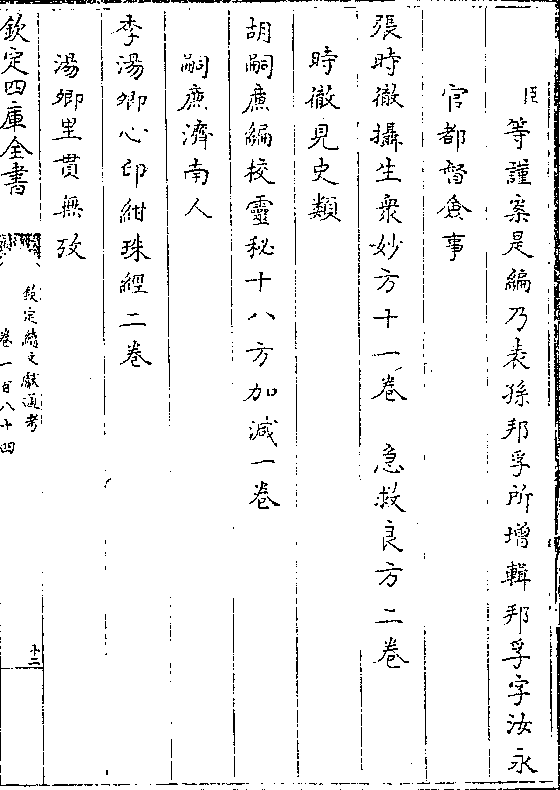 臣等謹案是編乃表孫邦孚所增輯邦孚字汝永
官都督僉事
張時徹攝生衆妙方十一卷　急救良方二卷
時徹見史類
胡嗣廉編校靈秘十八方加減一卷
嗣廉濟南人
李湯卿心印紺珠經二卷
湯卿里貫無攷
欽定四庫全書
欽定續文獻通考
卷一百八十四
十二